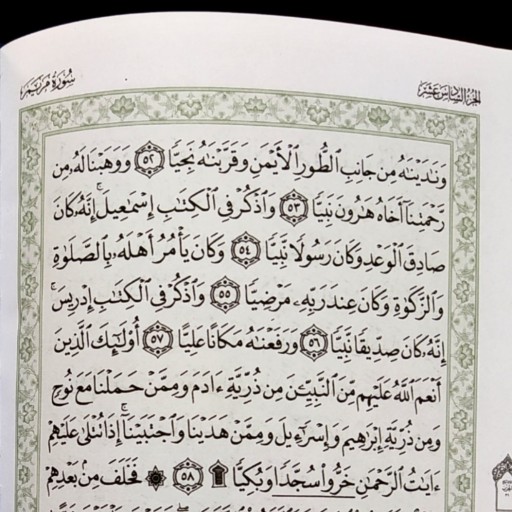 الجزء السادس عشر
سورة مريم
وَنَٰدَيْنَٰهُ مِن جَانِبِ ٱلطُّورِ ٱلْأَيْمَنِ وَقَرَّبْنَٰهُ نَجِيًّا ٥٢ وَوَهَبْنَا لَهُۥ مِن
رَّحْمَتِنَآ أَخَاهُ هَٰرُونَ نَبِيًّا ٥٣ وَٱذْكُرْ فِى ٱلْكِتَٰبِ إِسْمَٰعِيلَ ۚ إِنَّهُۥ كَانَ
صَادِقَ ٱلْوَعْدِ وَكَانَ رَسُولًا نَّبِيًّا ٥٤ وَكَانَ يَأْمُرُ أَهْلَهُۥ بِٱلصَّلَوٰةِ
وَٱلزَّكَوٰةِ وَكَانَ عِندَ رَبِّهِۦ مَرْضِيًّا ٥٥ وَٱذْكُرْ فِى ٱلْكِتَٰبِ إِدْرِيسَ ۚ
إِنَّهُۥ كَانَ صِدِّيقًا نَّبِيًّا ٥٦ وَرَفَعْنَٰهُ مَكَانًا عَلِيًّا ٥٧ أُو۟لَٰٓئِكَ ٱلَّذِينَ
أَنْعَمَ ٱللَّهُ عَلَيْهِم مِّنَ ٱلنَّبِيِّـۧنَ مِن ذُرِّيَّةِ ءَادَمَ وَمِمَّنْ حَمَلْنَا مَعَ نُوحٍ
وَمِن ذُرِّيَّةِ إِبْرَٰهِيمَ وَإِسْرَٰٓءِيلَ وَمِمَّنْ هَدَيْنَا وَٱجْتَبَيْنَآ ۚ إِذَا تُتْلَىٰ عَلَيْهِمْ
ءَايَٰتُ ٱلرَّحْمَٰنِ خَرُّوا۟ سُجَّدًا وَبُكِيًّا ۩ ٥٨ ۞ فَخَلَفَ مِنۢ بَعْدِهِمْ